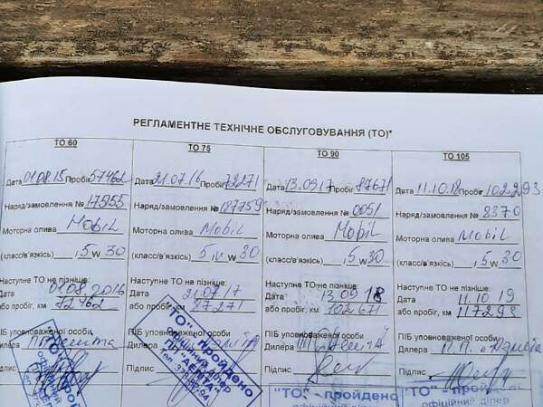 РЕГЛАМЕНТНЕ ТЕХНІЧНЕ ОБСЛУГОВУВАННЯ (ТО)*
ТО 60
ТО 75
ТО 90
ТО 105
Дата 01.08.15 Пробіг 57462
Дата 21.07.16 Пробіг 72271
Дата 13.09.17 Пробіг 87671
Дата 11.10.18 Пробіг 102293
Наряд/замовлення № 17955
Наряд/замовлення № 187759
Наряд/замовлення № 0051
Наряд/замовлення № 8370
Моторна олива Mobil
Моторна олива Mobil
Моторна олива Mobil
Моторна олива Mobil
(класс/в'язкість) , 5 w 30
(класс/в'язкість) 5 w 30
(класс/в'язкість) , 5 w 30
(класс/в'язкість) , 5 w 30
Наступне ТО не пізніше:
Наступне ТО не пізніше:
Наступне ТО не пізніше:
Наступне ТО не пізніше:
Дата 01.08.2016
Дата 21.07.17
Дата 13.09.18
Дата 11.10.19
або пробіг, км 72462
або пробіг, км 87271
або пробіг, км 102671
або пробіг, км 117293
ПІБ уповноваженої особи
ПІБ уповноваженої особи
ПІБ уповноваженої особи
ПІБ уповноваженої особи
Дилера
Дилера
Дилера
Дилера
Підпис
Підпис
Підпис
"ТО" - пройдено
"ТО" - пройдено
"ТО" - пройдено
офіційний дилер